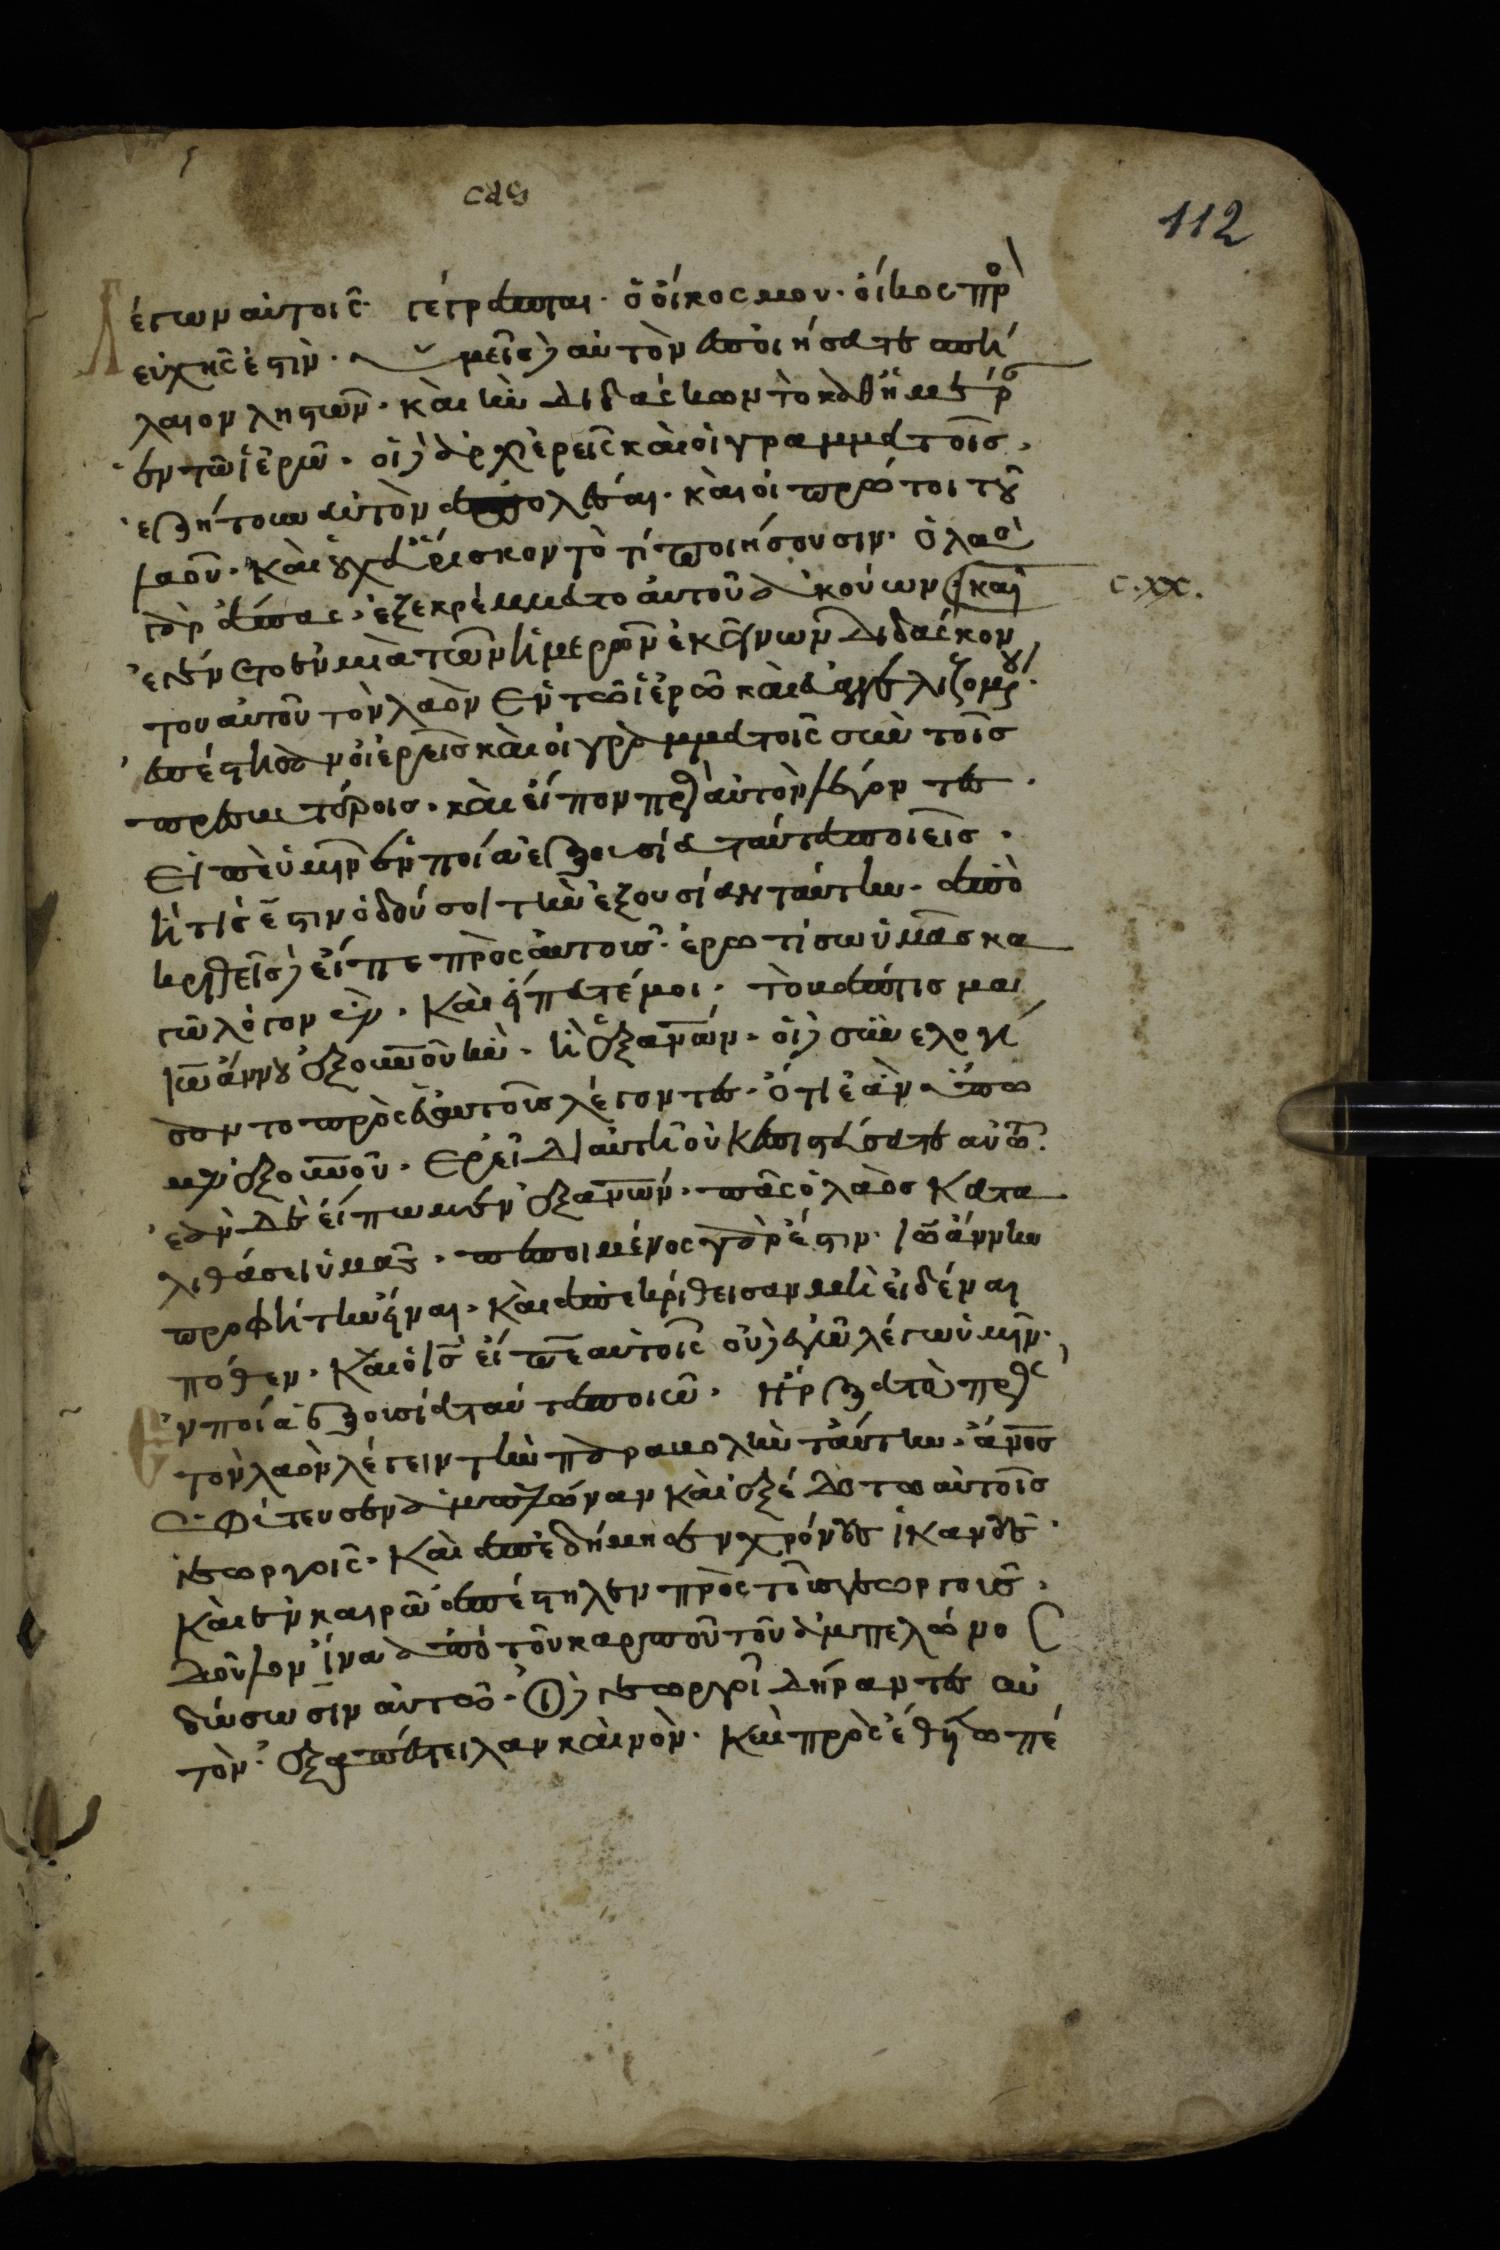 σας
112
λέγων αὐτοῖς· γέγραπται· ὁ οἶκος μου· οἶκος προ
ευχῆς ἐστὶν· ὑμεῖς δὲ αὐτὸν ἐποιήσατε σπή
λαιον ληστῶν· καὶ ἦν διδάσκων τὸ καθ ἡμέρ
ἐν τῶ ἱερῶ· οἱ δὲ ἀρχιερεῖς καὶ οἱ γραμματοῖς·
ἐζήτουν αὐτὸν ἀπολέσαι· καὶ οἱ πρῶτοι τοῦ
λαοῦ· καὶ οὐχ εὕρισκον τὸ τί ποιήσουσιν· ὁ λαὸς
γὰρ ἅπας· ἐξεκρέμματο αὐτοῦ ἀκούων καὶ
c.xx.
ἐγένετο ἐν μιᾶ τῶν ἡμερῶν ἐκείνων διδάσκον
του αὐτοῦ τὸν λαὸν ἐν τῶ ἱερῶ καὶ εὐαγγελιζομένου·
ἐπέστησαν οἱ ἱερεῖς καὶ οἱ γραμματοῖς σὺν τοῖς
πρεσβυτέροις· καὶ εἶπον πρὸς αὐτὸν λέγοντες·
εἰπὲ ὑμῖν ἐν ποία ἐξουσία ταύτα ποιεῖς·
ἢ τίς ἐστιν ὁ δούς σοι τὴν ἐξουσίαν ταύτην· ἀπο
κριθεὶς δὲ εἶπε πρὸς αὐτοῖς· ἐρωτίσω ὑμᾶς κα
γῶ λόγον ἕνα· καὶ εἴπατέ μοι· τὸ βάπτισμα
ἰωάννου ἐξ οὐνοῦ ἦν· ἢ ἐξ ἀνῶν· οἱ δὲ συνελογί
σαντο πρὸς ἑαυτοῖς λέγοντες· ὅτι ἐὰν εἴπω
μεν ἐξ οὐνοῦ· ἐρεῖ διατί οὐκ ἐπιστεύσατε αὐτῶ·
ἐὰν δὲ εἴπωμεν ἐξ ἀνῶν· πᾶς ὁ λαὸς κατα
λιθάσει ὑμᾶς· πεποιμένος γὰρ ἐστιν· ἰωάννην
προφήτην εἶναι· καὶ ἀπεκρίθεισαν μὴ εἰδέναι
πόθεν· καὶ ὁ ις εἶπεν αὐτοῖς οὐδὲ ἐγὼ λέγω ὑμῖν·
ἐν ποία ἐξουσία ταύτα ποιῶ· ἤρξατο δὲ πρὸς
τὸν λαὸν λέγειν τὴν παραβολὴν ταύτην· ἄνος
ἐφίτευσεν ἀμπελῶναν καὶ ἐξέδετο αὐτοῖς
γεωργοῖς· καὶ ἀπεδήμησεν χρόνους ἱκανούς·
καὶ ἐν καιρῶ ἀπέστηλεν πρὸς τοῖς γεωργοῖς·
δοῦλον ἵνα ἀπὸ τοῦ καρποῦ τοῦ ἀμπελώνος
δώσωσιν αὐτῶ· οἱ δὲ γεωργοὶ δήραντες αὐ
τὸν· ἐξαπέστειλαν καινὸν· καὶ προσέθη πέ